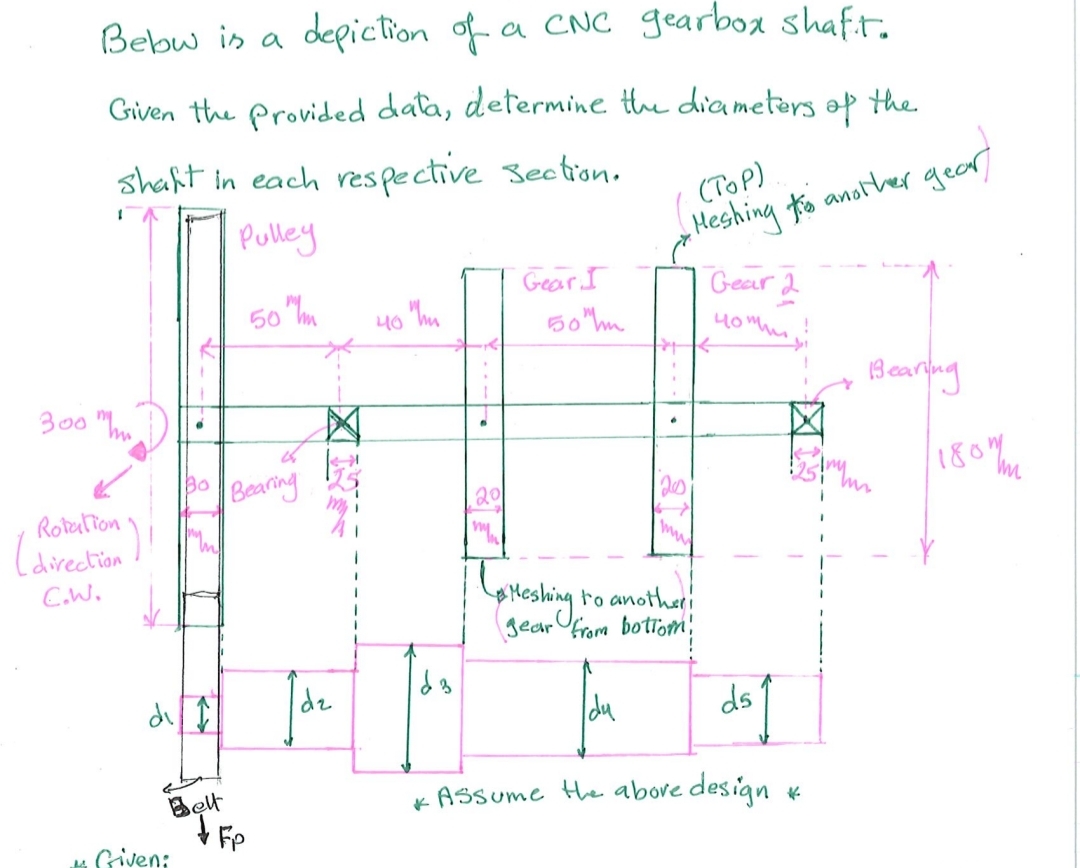 Below is a depiction of a CNC gearbox shaft.
Given the provided data, determine the diameters of the
shaft in each respective section.
(TOP)
Meshing to another gear
Pulley
Gear 1
Gear 2
50 mm
40 mm
50 mm
40 mm
Bearing
300 mm
180 mm
30
mm
Bearing
25
mm
20
mm
20
mm
25 mm
(Rotation
direction
C.W.)
(Meshing to another
gear from bottom)
d1
d2
d3
d4
d5
* Assume the above design *
Belt
Fp
* Given: